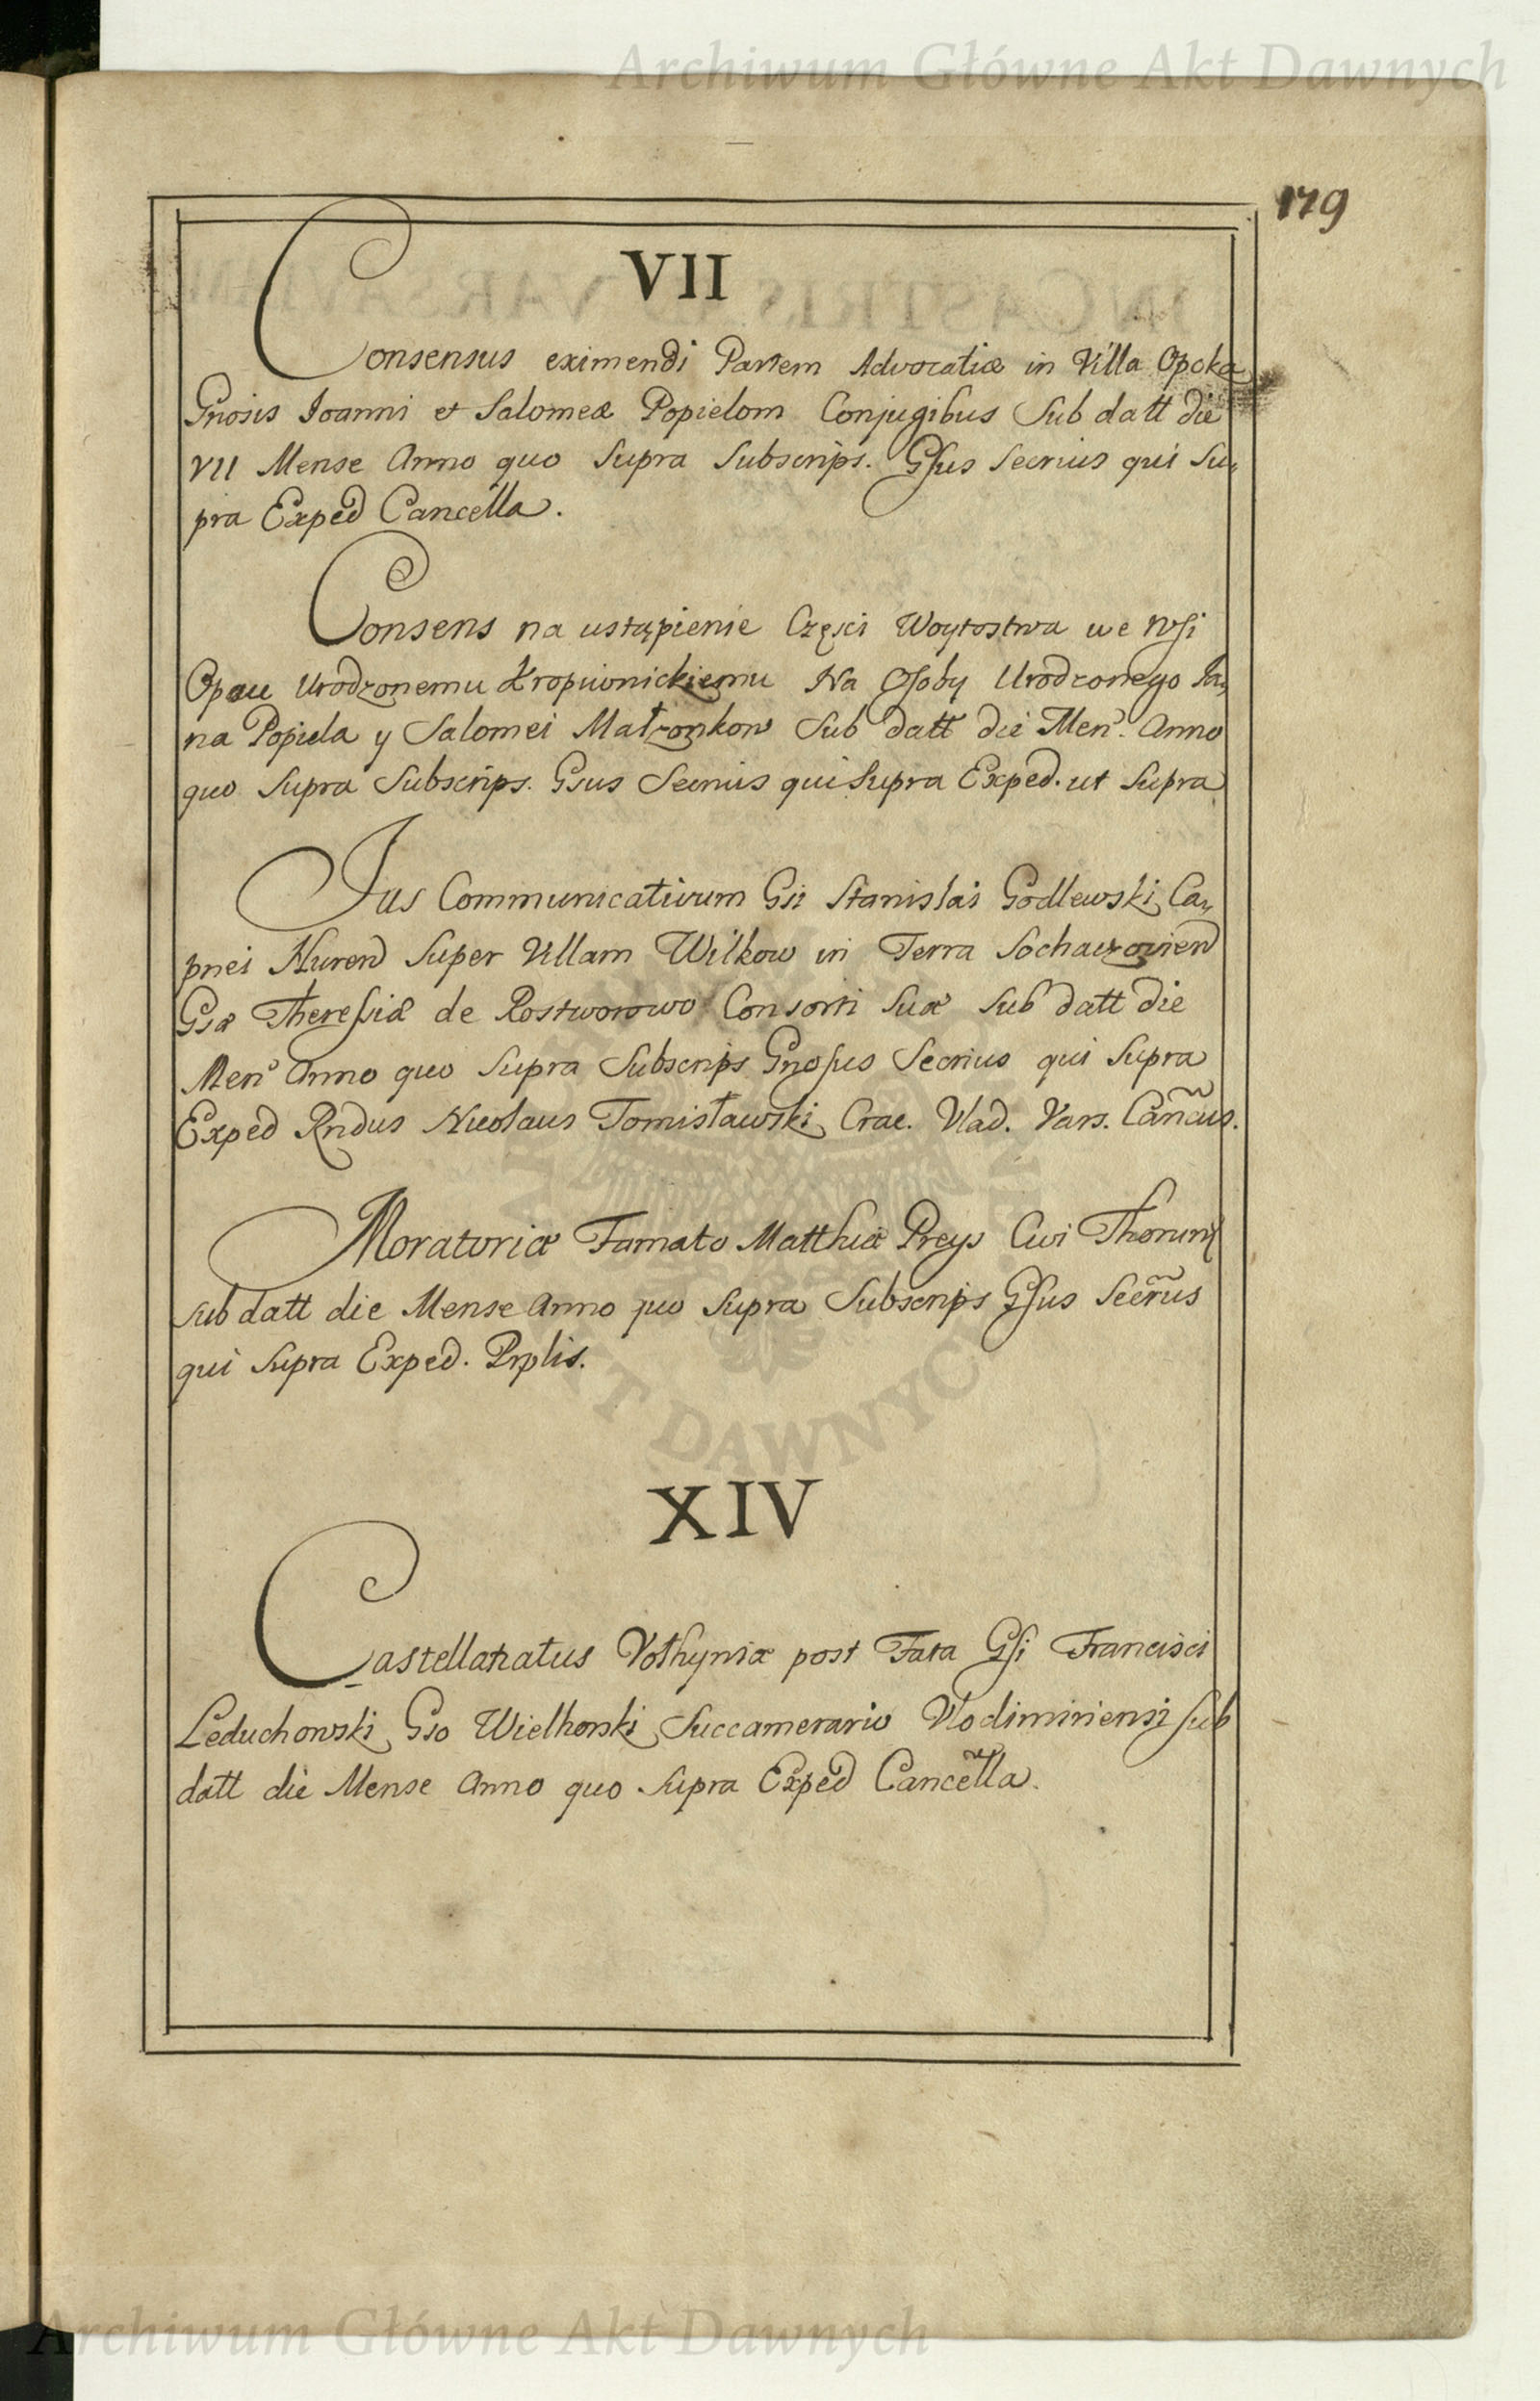 Archiwum Główne Akt Dawnych
179
VII
Consensus eximendi Partem Advocatiæ in Villa Opoka
Gnosis Joanni et Salomeæ Popielom Conjugibus Sub datt die
VII Mense Anno quo Supra Subscrips. Gsus Secrius qui Su,
pra Exped Cancella.
Consens na ustąpienie Części Woytostwa we Wsi
Urodzonemu Kropiwnickiemu Na Osoby Urodzonego Ja,
na Popiela y Salomei Małzonkow Sub datt die Men. Anno
quo Supra Subscrips. Gsus Secrius qui Supra Exped. ut Supra
Jus Communicativum Gsi Stanislai Godlewski Ca,
pnei Nuren Super Villam Wilkow in Terra Sochaczovien
Gsæ Theresiæ de Rostworowo Consorti Suæ Sub datt die
Men Anno quo Supra Subscrips Gnosus Secrius qui Supra
Exped Rndus Nicolaus Tomisławski Crac. Vlad. Vars. Cancus.
Moratoriæ Famato Matthiæ Preys Civi Thorun
sub datt die Mense Anno quo Supra Subscrips Gsus Secrus
qui Supra Exped. Prplis.
XIV
Castellanatus Volhyniæ post Fata Gsi Francisci
Leduchowski Gso Wielhorski Succamerario Vlodimiriensi sub
datt die Mense Anno quo Supra Exped Cancella.
Archiwum Główne Akt Dawnych